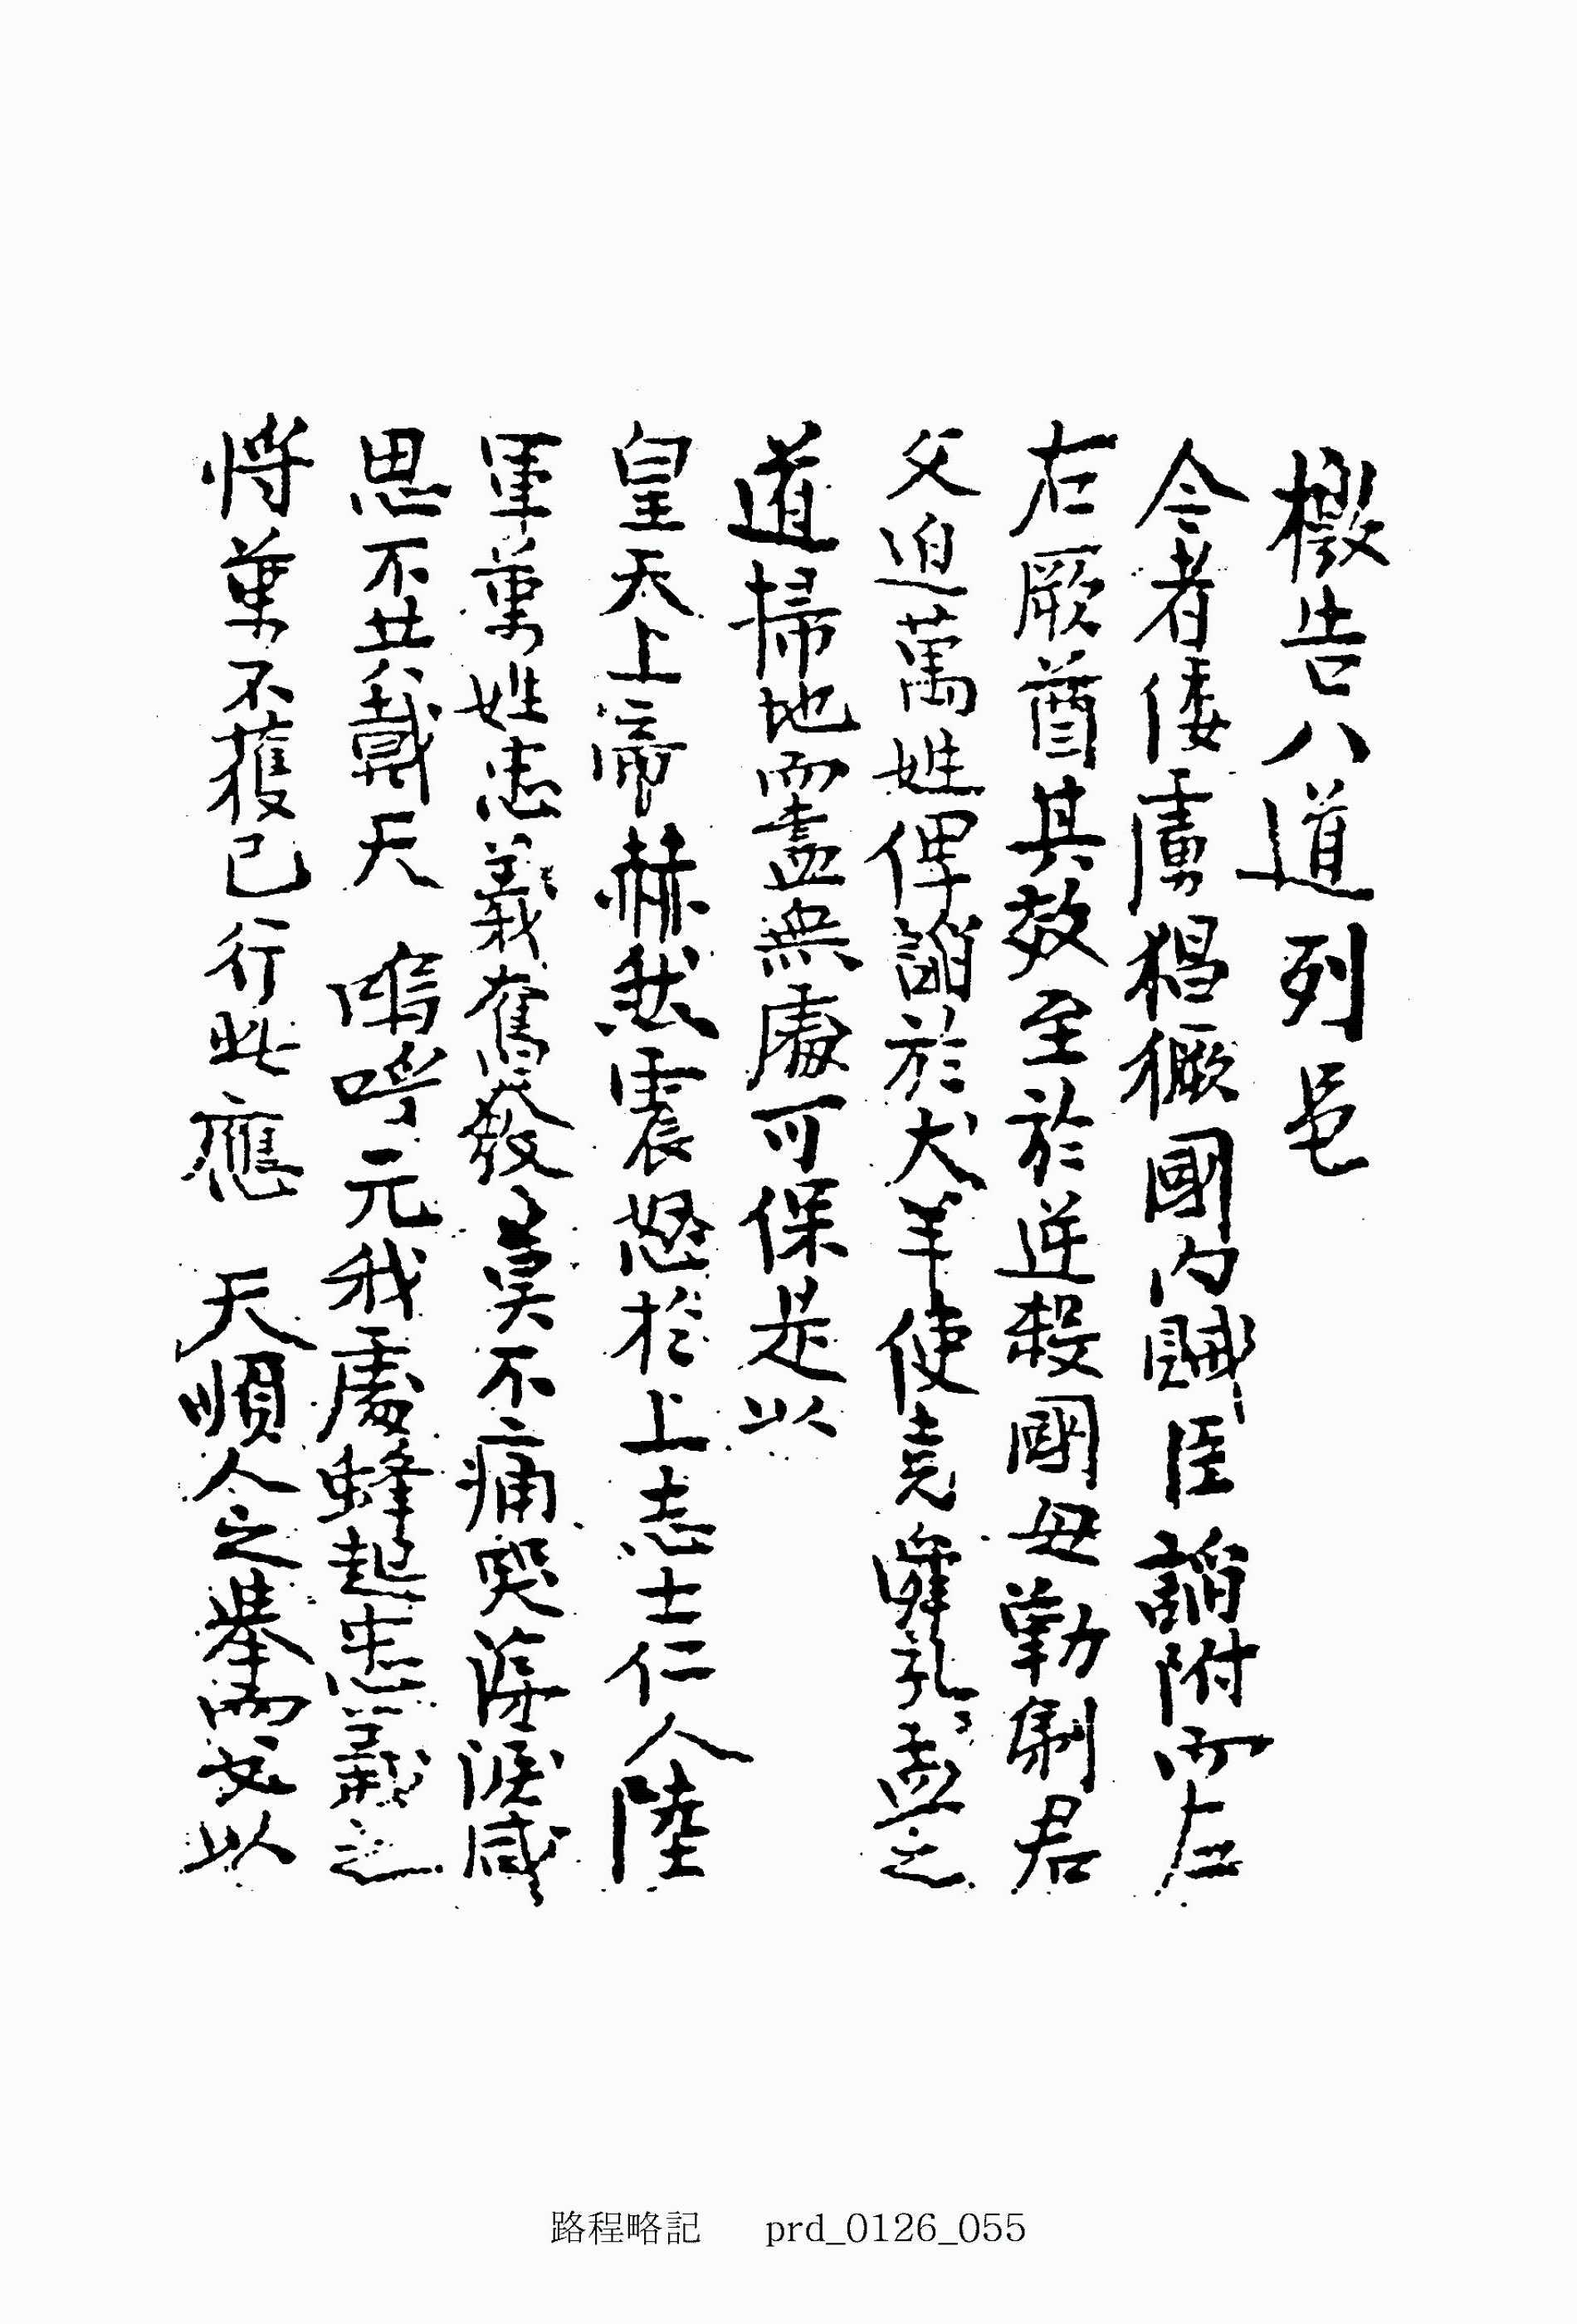 檄告八道列邑
今者倭虜猖獗國內賊臣謟附而左
右厥酋其效至於逆殺國母勤制君
父迫萬姓俾謟於犬羊使堯舜孔孟之
道掃地而盡無處可保是以
皇天上帝赫然震怒於上志士仁人陸
軍萬姓忠義奮發莫不痛哭落淚咸
思不共戴天 嗚呼元我處蜂起忠義之
將萬不獲已行此應 天順人之擧而如以
路程略記 prd_0126_055